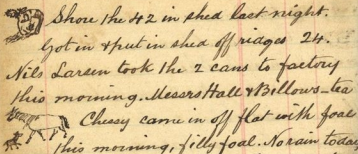 Shore the 42 in shed last night.
Got in & put in shed off ridges 24.
Nils Larsen took the 2 cans to factory
this morning. Messrs Hall & Bellows - tea
Chessy came in off flat with foal
this morning, filly foal. No rain today